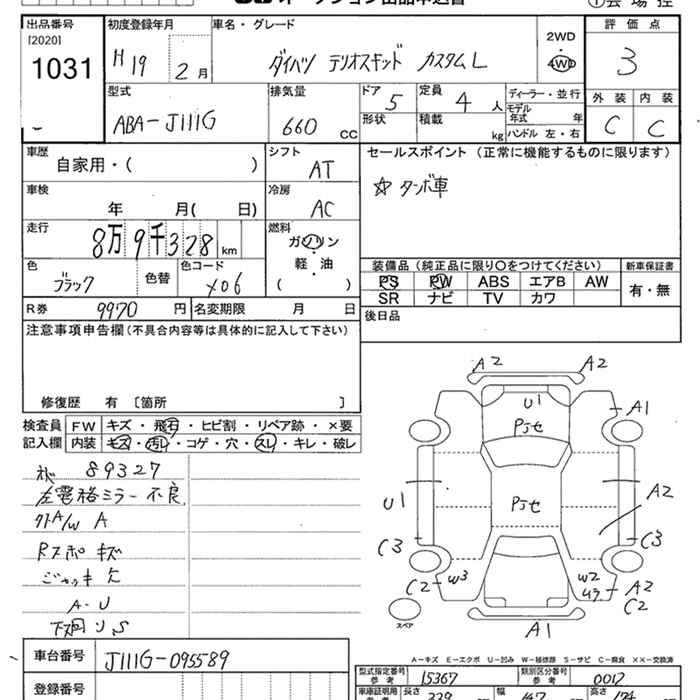 オークション出品申込書
①会場控
出品番号 [2020] 1031
初度登録年月 H19 2月
車名・グレード ダイハツ テリオスキッド カスタムL
2WD・4WD
評価点 3
型式 ABA-J111G
排気量 660 CC
ドア 5
形状
定員 4人
積載 kg
ディーラー・並行
モデル年式 年
ハンドル 左・右
外装 C
内装 C
車歴 自家用・( )
シフト AT
セールスポイント(正常に機能するものに限ります)
☆ タンボ車
車検 年 月( 日)
冷房 AC
走行 8万9千328km
燃料 ガソリン・軽・油 ( )
色 ブラック
色替
色コード X06
装備品(純正品に限り○をつけてください)
新車保証書 有・無
PS PW ABS エアB AW
SR ナビ TV カワ
R券 9970円
名変期限 月 日
後日品
注意事項申告欄(不具合内容等は具体的に記入して下さい)
修復歴 有 〔箇所 〕
検査員記入欄
FW キズ・飛石・ヒビ割・リペア跡・×要
内装 キズ・汚レ・コゲ・穴・スレ・キレ・破レ
89327
左電格ミラー不良
外A/W A
Rスポ キズ
ジャッキ欠
A-U
下廻り S
A2 A2
U1
A1
Pジセ
Pジセ
U1
A2
C3
C3
C2 W3
W2 A2
C2
スペア
A1
A-キズ E-エクボ U-凹み W-補修跡 S-サビ C-腐食 XX-交換済
車台番号 J111G-095589
登録番号
型式指定番号 参考 15367
類別区分番号 参考 0012
車庫証明用 参考
長さ 339
幅 147
高さ